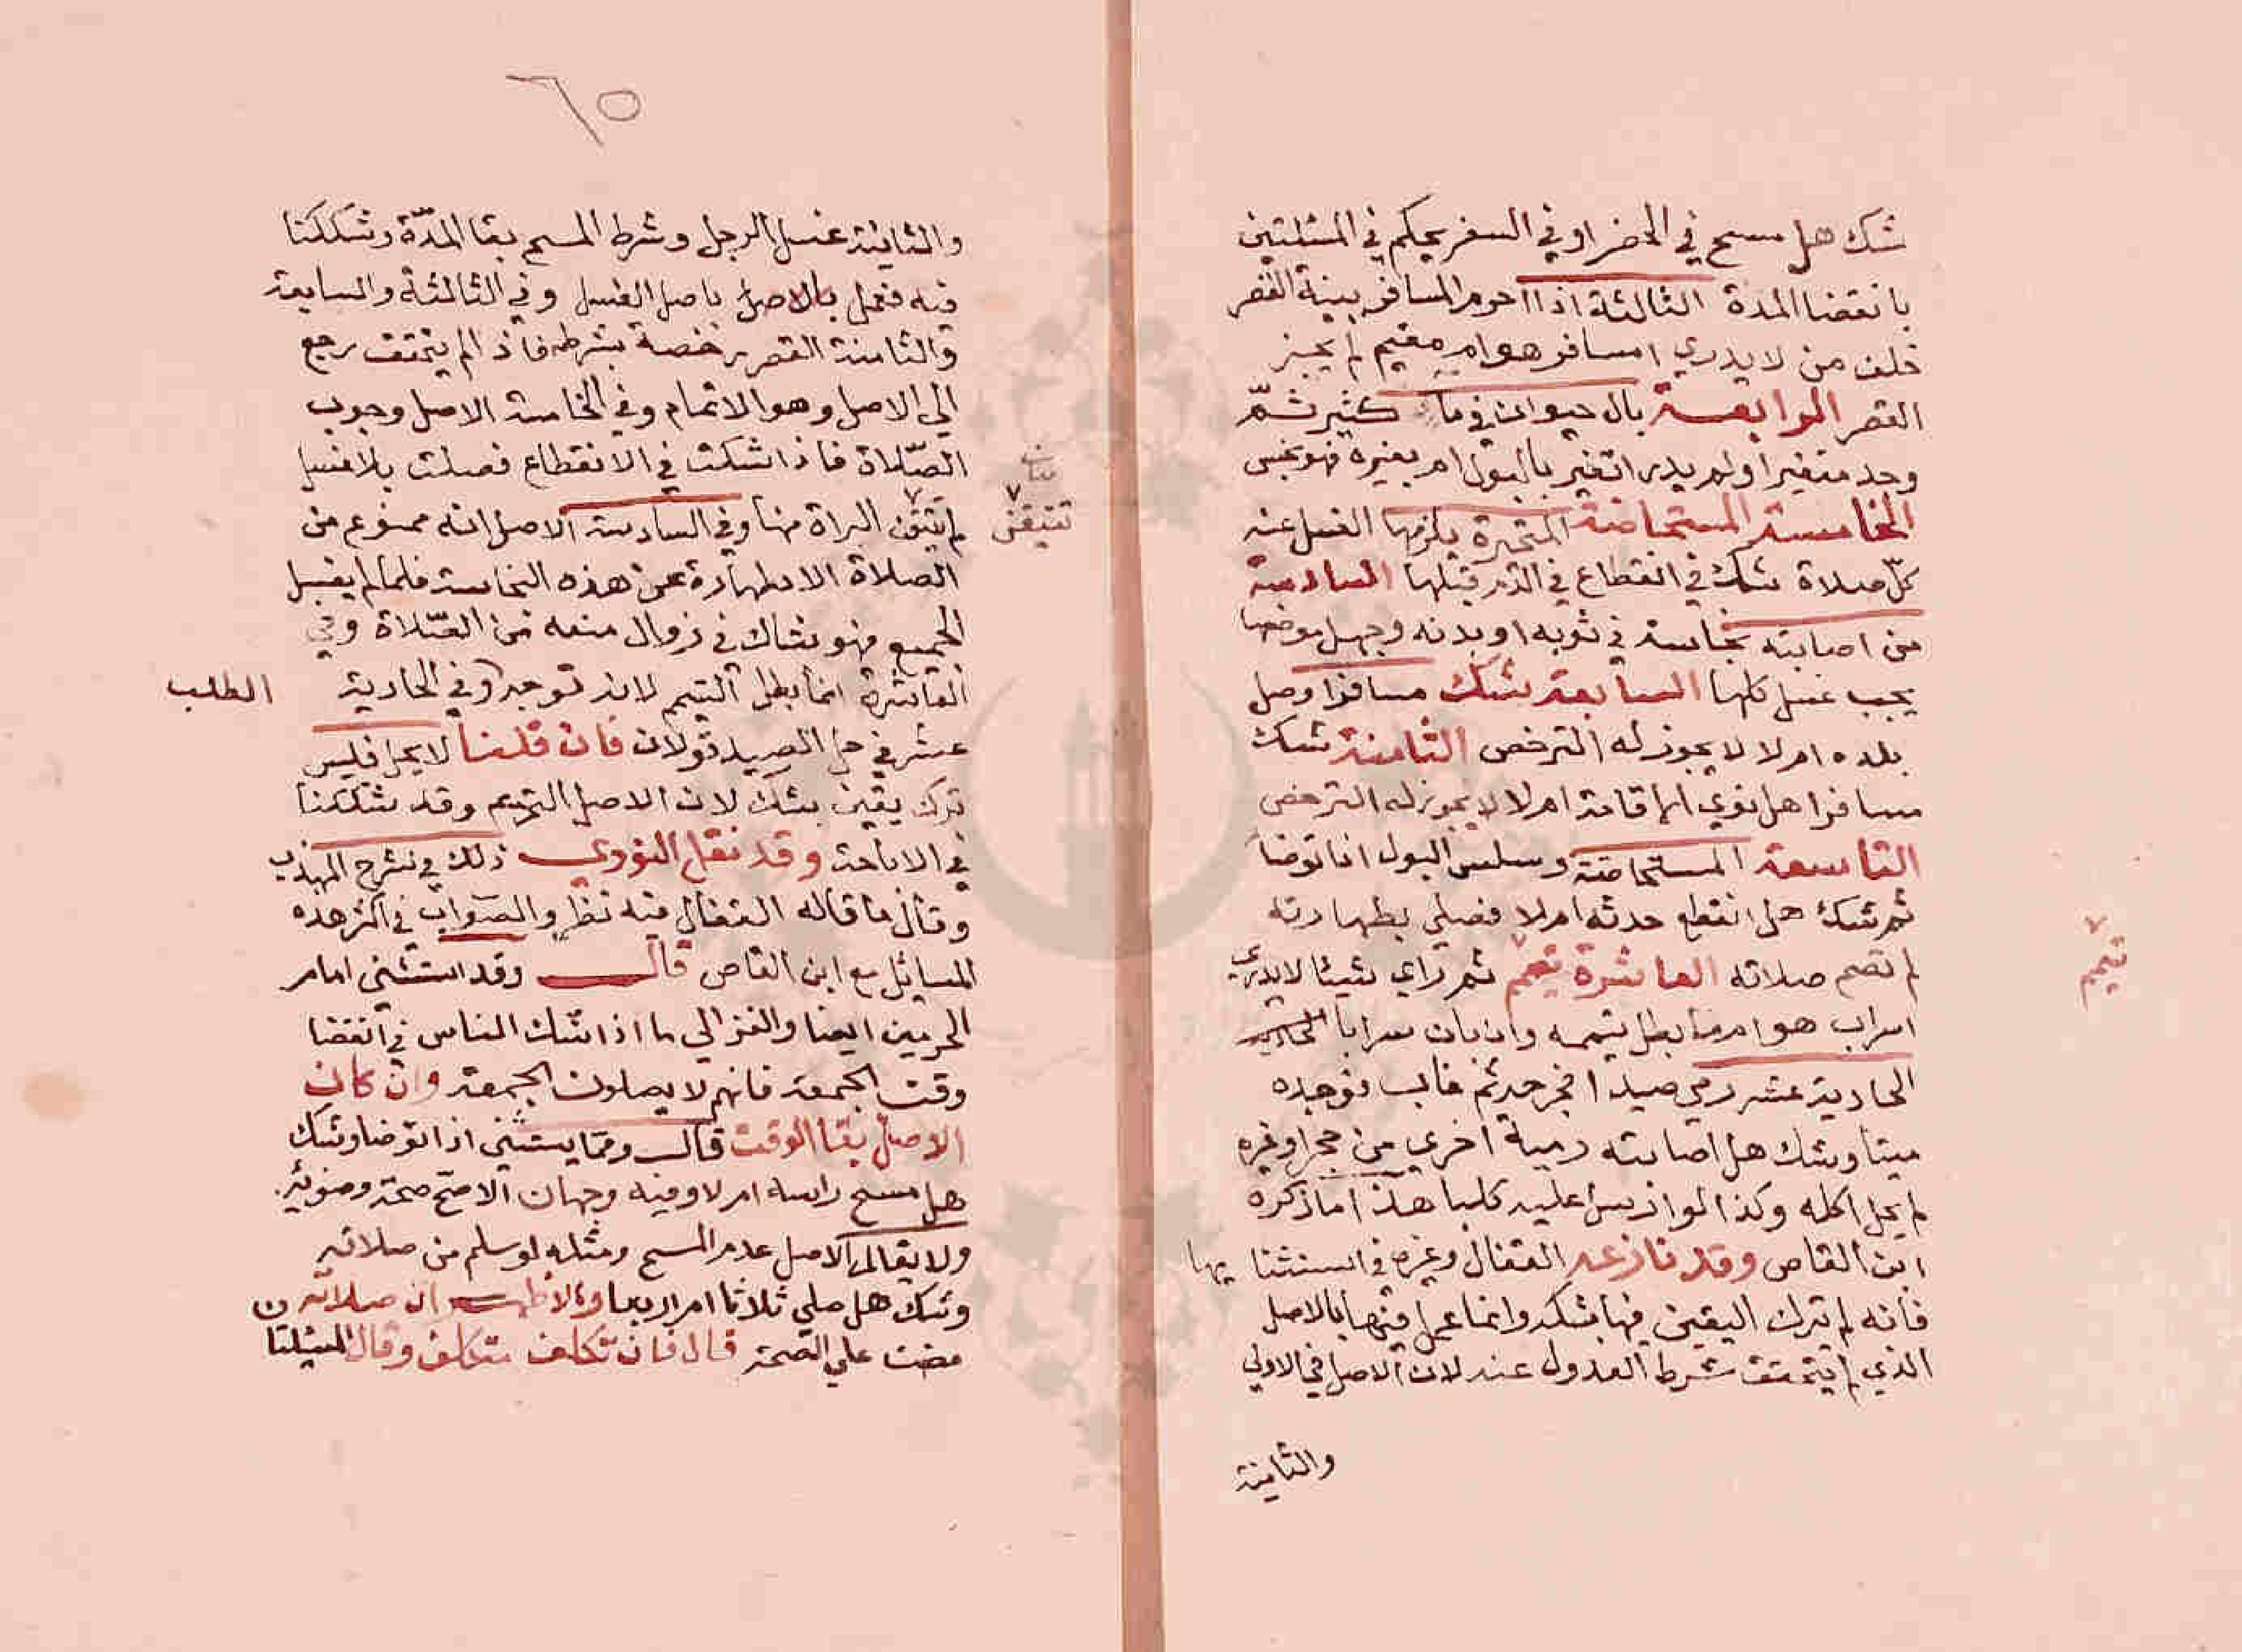 شك هل مسح في الحضر او في السفر يحكم في المسئلتين
بانقضا المدة الثالثة اذا احرم المسافر بنية القصر
خلف من لا يدري امسافر هو ام مقيم لم يجز
القصر الرابعة بال حيوان في ما كثير ثم
وجد متغيرا ولم يدر اتغير بالبول ام بغيره فهو نجس
الخامسة المستحاضة المتحيرة يلزمها الغسل عند
كل صلاة شك في انقطاع في الدم قبلها السادسة
من اصابته نجاسة في ثوبه او بدنه وجهل موضعها
يجب غسل كلها السابعة شك مسافر اوصل
بلده ام لا لا يجوز له الترخص الثامنة شك
مسافر هل نوي الاقامة ام لا لا يجوز له الترخص
التاسعة المستحاضة وسلس البول اذا توضا
ثم شك هل انقطع حدثه ام لا فصلي بطهارته
لم تصح صلاته العاشرة تيمم ثم راي شيئا لا يدري
تيمم
اسراب هو ام ما بطل تيممه وان بان سرابا
الحادية عشر رمي صيدا فجرحه ثم غاب فوجده
ميتا وشك هل اصابته رمية اخري من حجر او غيره
لم يحل اكله وكذا لو ارسل عليه كلبا هذا ما ذكره
ابن القاص وقد نازعه القفال وغيره في استثنا يها
فانه لم يترك اليقين فيها بشك وانما عمل فيها بالاصل
الذي لم يتحقق شرط العدول عنه لان الاصل في الاولي
والثانية
٦٥
والثانية غسل الرجل وشرط المسح بقا المدة وشككنا
فيه فعمل بالاصل باصل الغسل وفي الثالثة والسابعة
والثامنة القصر رخصة بشرط فاذا لم يتحقق رجع
الي الاصل وهو الاتمام وفي الخامسة الاصل وجوب
الصلاة فاذا شكت في الانقطاع فصلت بلا غسل
لم تتيقن البراة منها وفي السادسة الاصل انه ممنوع من
تتيقن
الصلاة الا بطهارة عن هذه النجاسة فلما لم يغسل
الجميع فهو شاك في زوال منعه من الصلاة وفي
العاشرة انما بطل التيمم لانه توجه وفي الحادية
الطلب
عشر في حل الصيد قولان فان قلنا لا يحل فليس
ترك يقين بشك لان الاصل التحريم وقد شككنا
في الاباحة وقد نقل النووي ذلك في شرح المهذب
وقال ما قاله القفال فيه نظر والصواب في اكثر هذه
المسائل مع ابن القاص قال وقد استثني امام
الحرمين ايضا والغزالي ما اذا شك الناس في انقضا
وقت الجمعة فانهم لا يصلون الجمعة وان كان
الاصل بقا الوقت قال ومما يستثني اذا توضا وشك
هل مسح راسه ام لا وفيه وجهان الاصح صحة وضوئه
ولا يقال الاصل عدم المسح ومثله لو سلم من صلاته
وشك هل صلي ثلاثا ام اربعا والاظهر ان صلاته
مضت علي الصحة قال فان تكلف متكلف وقال المسئلتان